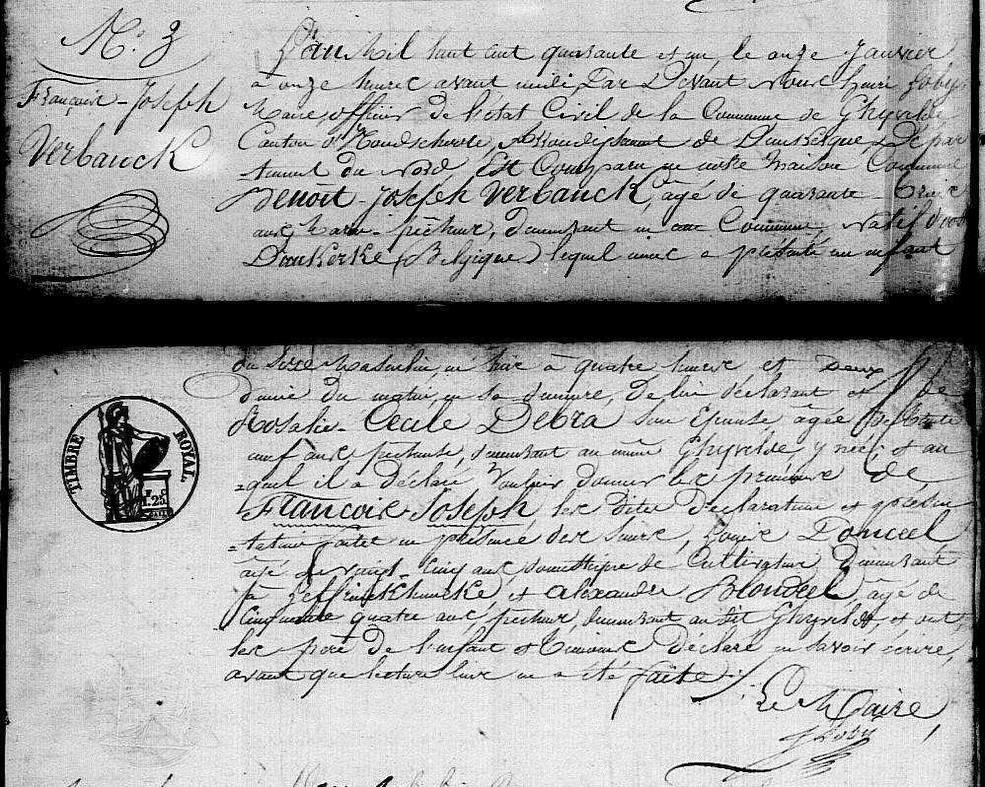 N.º 3
François-Joseph
Verbanck
L'an Mil huit cent quarante et un, le onze Janvier
à onze heures avant midi Par Devant Nous henri Joby,
Maire, officier de l'état Civil de la Commune de Ghyvelde
Canton d'Hondschoote, Arrondissement de Dunkerque, Dépar
tement du Nord, Est Comparu en notre Maison Commune
Benoît-Joseph Verbanck, agé de quarante-trois
ans, pêcheur, demeurant en cette Commune, natif d'oost
Dunkerke (Belgique) lequel nous a présenté un enfant
du sexe Masculin, né hier à quatre heures et
du matin, en sa demeure, de lui déclarant et de
Rosalie-Cecile Debra son Epouse, agée de trente
neuf ans, demeurant au même Ghyvelde, y née; et au
=quel il a déclaré Vouloir donner les prénoms de
François Joseph, les dites Déclaration et présen
=tation faites en présence des sieurs, Donceel
agé de vingt cinq ans, domestique de Cultivateur, Demeurant
à Leffrinckhoucke et alexandre Blondeel, agé de
Cinquante quatre ans, pêcheur, demeurant au dit Ghyvelde, et ont,
les père de l'enfant et témoins Déclaré ne savoir écrire,
avant que lecture leur en a été faite.
Le Maire,
Joby
TIMBRE ROYAL
1.25